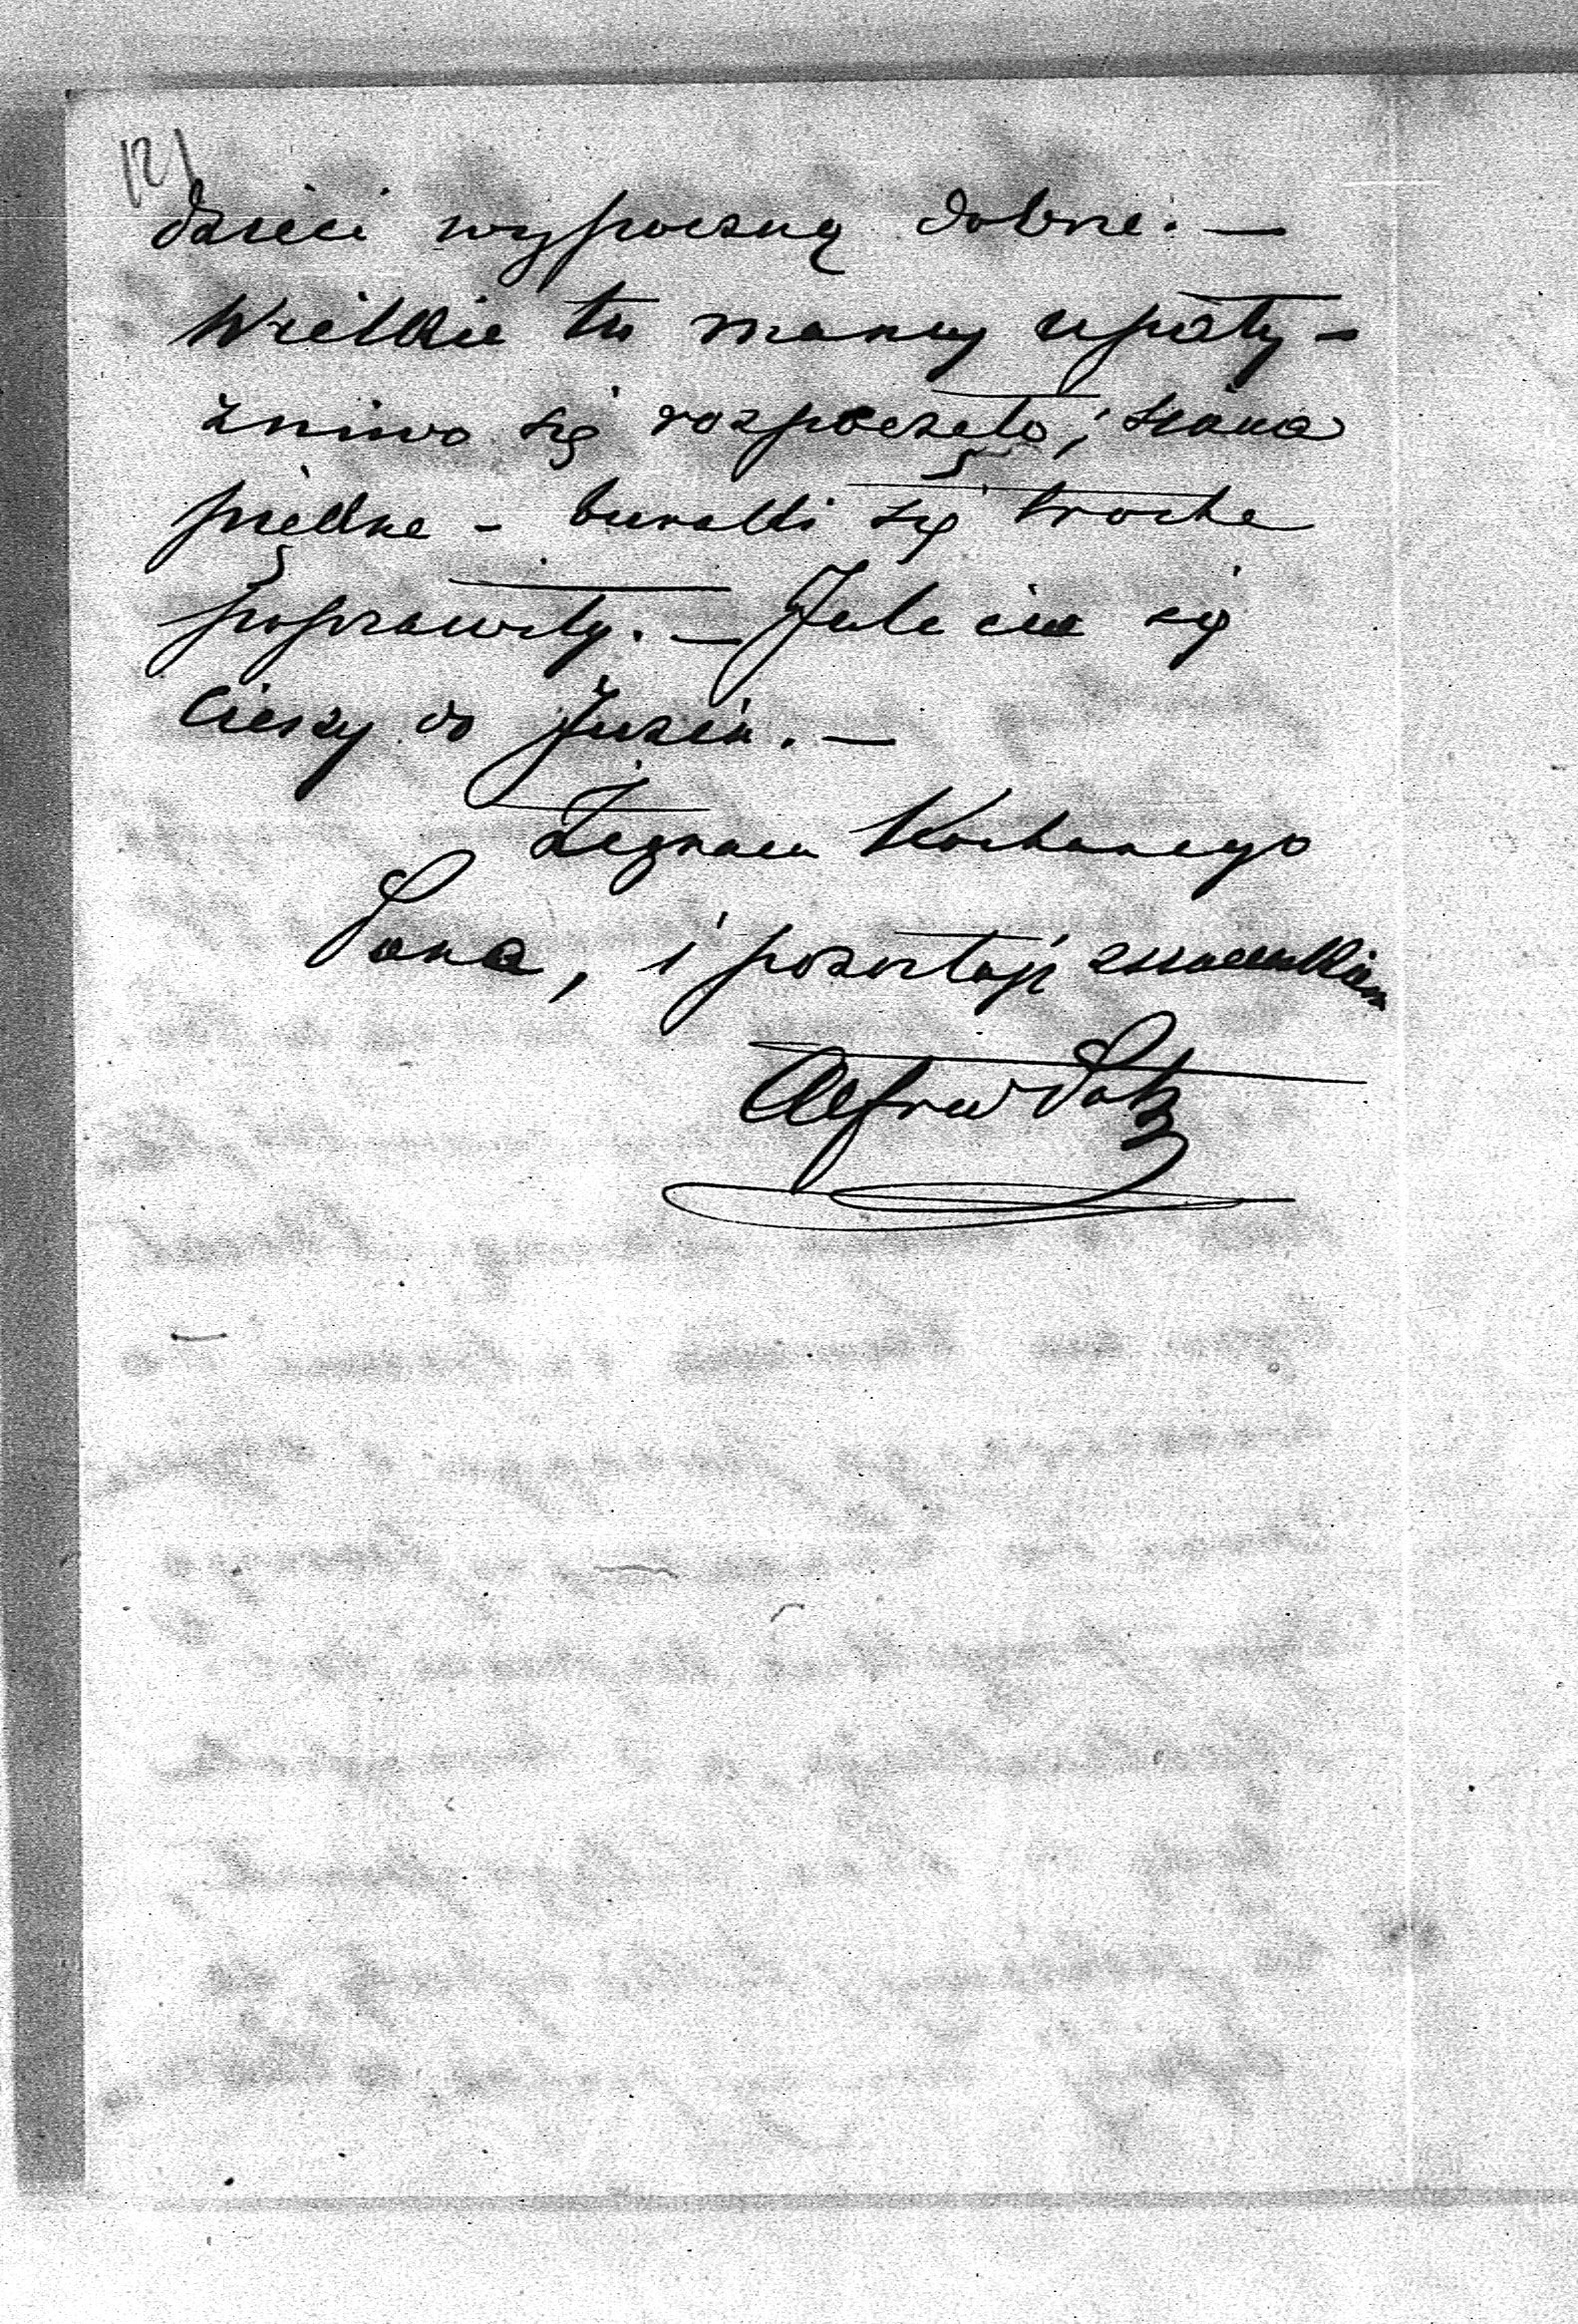 12/
dzieci wypoczną dobrze. —
Wielkie tu mamy upały -
żniwo się rozpoczęło; siana
piękne - buraki się trochę
poprawiły. — Julcia się
cieszy do Józia. —
Żegnam Kochanego
Pana, i pozostaję z szacunkiem
Alfred Potz